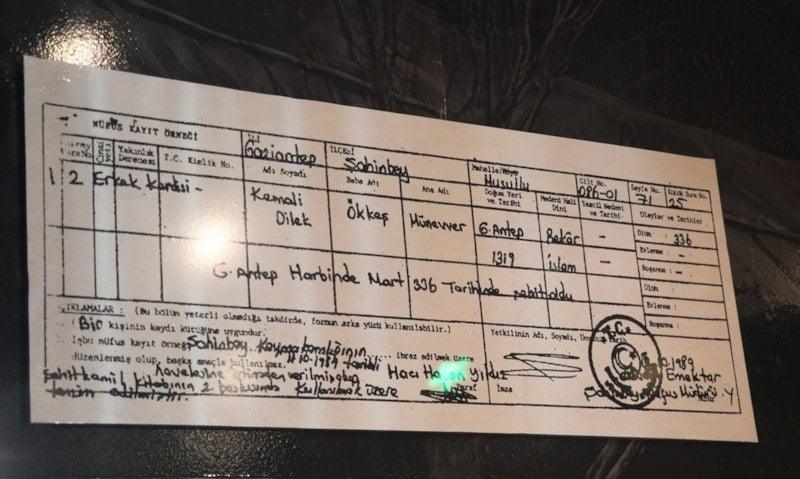 NÜFUS KAYIT ÖRNEĞİ
İLİ Gaziantep İLÇESİ Şahinbey Mahalle/Köyü Cilt No. 086-01 Sayfa No. 71 25
Yakınlık Derecesi T.C. Kimlik No. Adı Soyadı Baba Adı Ana Adı Doğum Yeri ve Tarihi Medeni Hali Dini Tescil Nedeni ve Tarihi Olaylar ve Tarihler
1 2 Erkek Kendisi - Kamali Dilek Ökkaş Münevver G.Antep 1319 Bekâr İslam - - Ölüm : 336
Evlenme : -
Boşanma : -
G.Antep Harbinde Mart 336 Tarihinde şehit oldu
Ölüm :
Evlenme :
Boşanma :
AÇIKLAMALAR : (Bu bölüm yeterli olmadığı takdirde, formun arka yüzü kullanılabilir.)
(Bir kişinin kaydı kütüğüne uygundur.
İşbu nüfus kayıt örneği Şahinbey Kaymakamlığının ibraz edilmek üzere
düzenlenmiş olup, başka amaçla kullanılmaz. 10-1989 tarihli
Hacı Yıldız
Şehitkamil kitabının 2 baskısında kullanılmak üzere
Yetkilinin Adı, Soyadı,
İmza
T.C.
1989
Emektar
Şahinbey Nüfus Müdürü Y